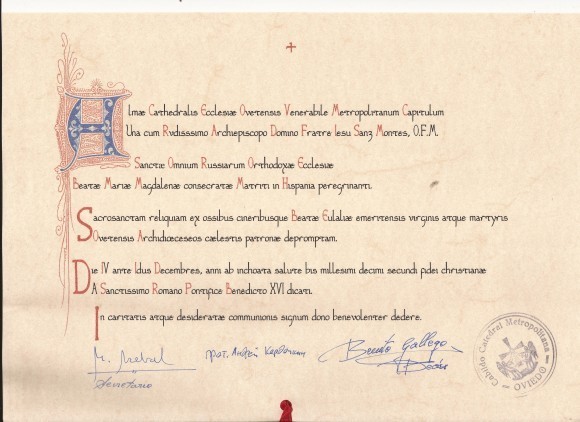 Almæ Cathedralis Ecclesiæ Ovetensis Venerabile Metropolitanum Capitulum
Una cum Rvdisssimo Archiepiscopo Domino Fratre Iesu Sanz Montes, O.F.M.
Sanctæ Omnium Russiarum Orthodoxæ Ecclesiæ
Beatæ Mariæ Magdalenæ consecratæ Matriti in Hispania peregrinanti.
Sacrosanctam reliquiam ex ossibus cineribusque Beatæ Eulaliæ emeritensis virginis atque martyris
Ovetensis Archidiœceseos cælestis patronæ depromptam.
Die IV ante Idus Decembres, anni ab inchoata salute bis millesimi decimi secundi fidei christianæ
A Sanctissimo Romano Pontifice Benedicto XVI dicati.
In caritatis atque desideratæ communionis signum dono benevolenter dedere.
Secretario
Benito Gallego
Deán
Cabildo Catedral Metropolitano
OVIEDO